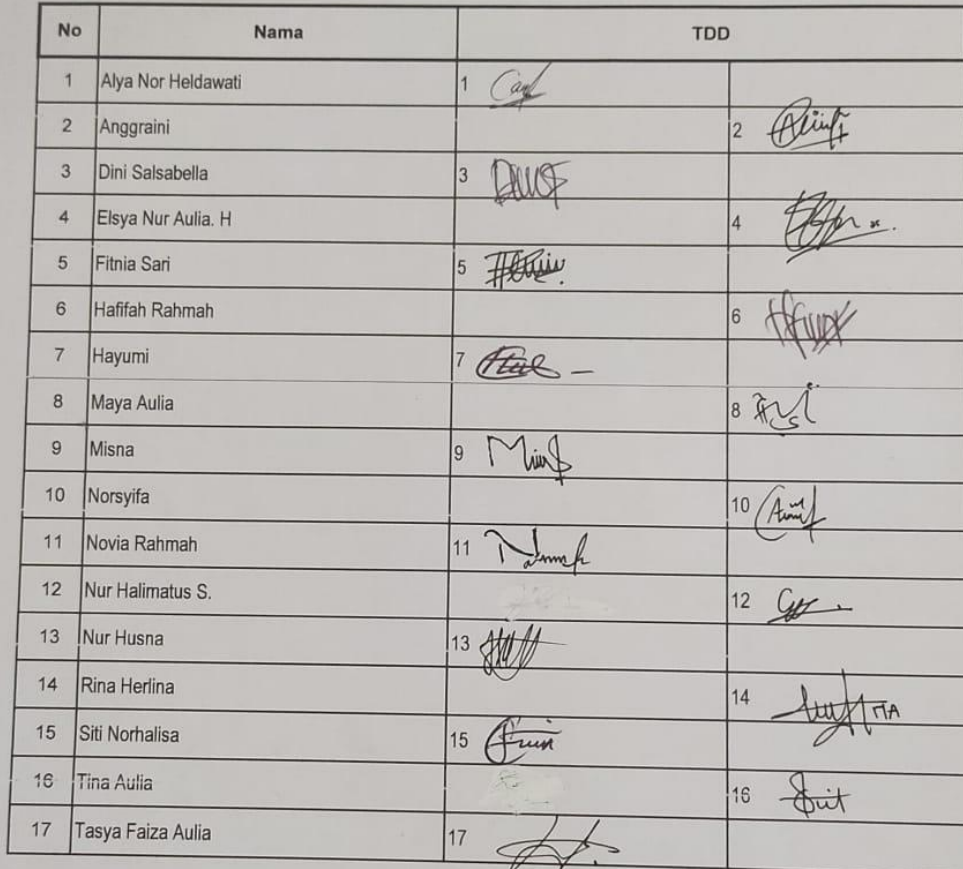 No Nama TDD
1 Alya Nor Heldawati 1
2 Anggraini 2
3 Dini Salsabella 3
4 Elsya Nur Aulia. H 4
5 Fitnia Sari 5
6 Hafifah Rahmah 6
7 Hayumi 7
8 Maya Aulia 8
9 Misna 9
10 Norsyifa 10
11 Novia Rahmah 11
12 Nur Halimatus S. 12
13 Nur Husna 13
14 Rina Herlina 14
15 Siti Norhalisa 15
16 Tina Aulia 16
17 Tasya Faiza Aulia 17